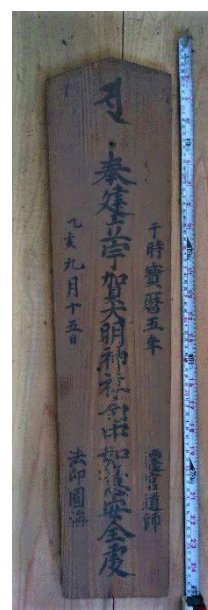 于時寶暦五年　遷宮道師
奉建立宇賀大明神社中如意安全處
乙亥九月十五日　法印圓海